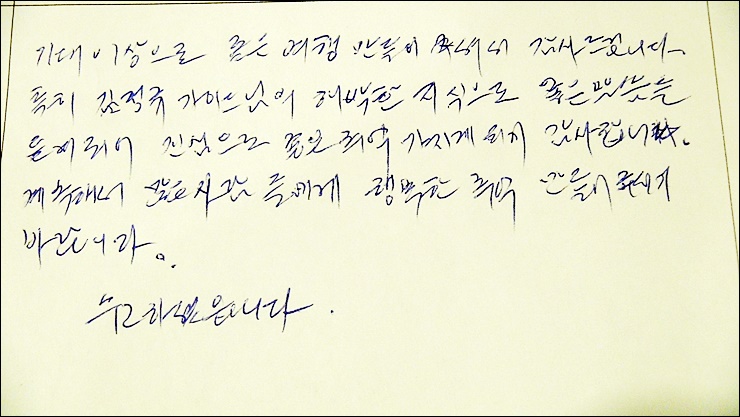 기대 이상으로 좋은 여행 만들어 주셔서 감사드립니다.
특히 김정국 가이드님의 해박한 지식으로 좋은 말씀들
듣게 되어 진심으로 좋은 추억 가지게 되어 감사합니다.
계속해서 많은 사람들에게 행복한 추억 만들어 주시기
바랍니다.
수고하셨습니다.